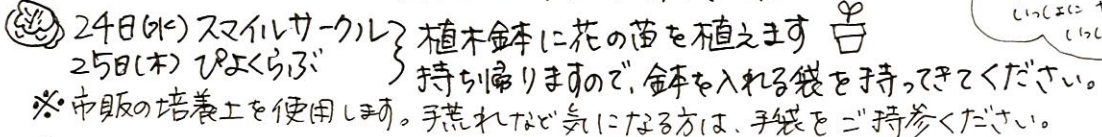 24日(水) スマイルサークル
25日(木) ぴよくらぶ
植木鉢に花の苗を植えます
持ち帰りますので、鉢を入れる袋を持ってきてください。
※市販の培養土を使用します。手荒れなど気になる方は、手袋をご持参ください。
いっしょに